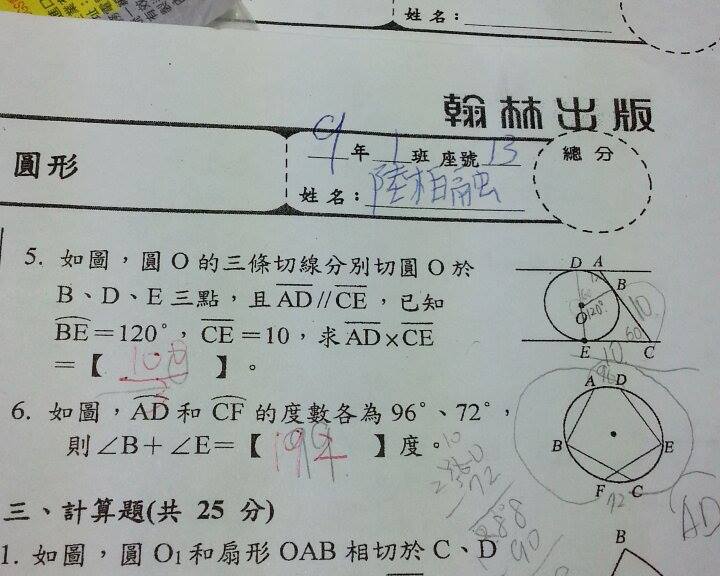 姓名：
翰林出版
圓形
9年1班 座號13
姓名：陸柏融
總分
5. 如圖，圓 O 的三條切線分別切圓 O 於
B、D、E 三點，且 AD // CE，已知
BE＝120°，CE＝10，求 AD×CE
＝【 100/3 】。
D A
B
O
120°
10
60
E C
10
6. 如圖，AD 和 CF 的度數各為 96°、72°，
則∠B＋∠E＝【 194 】度。
96
A D
B E
F C
72
AD
三、計算題(共 25 分)
1. 如圖，圓 O₁ 和扇形 OAB 相切於 C、D
B